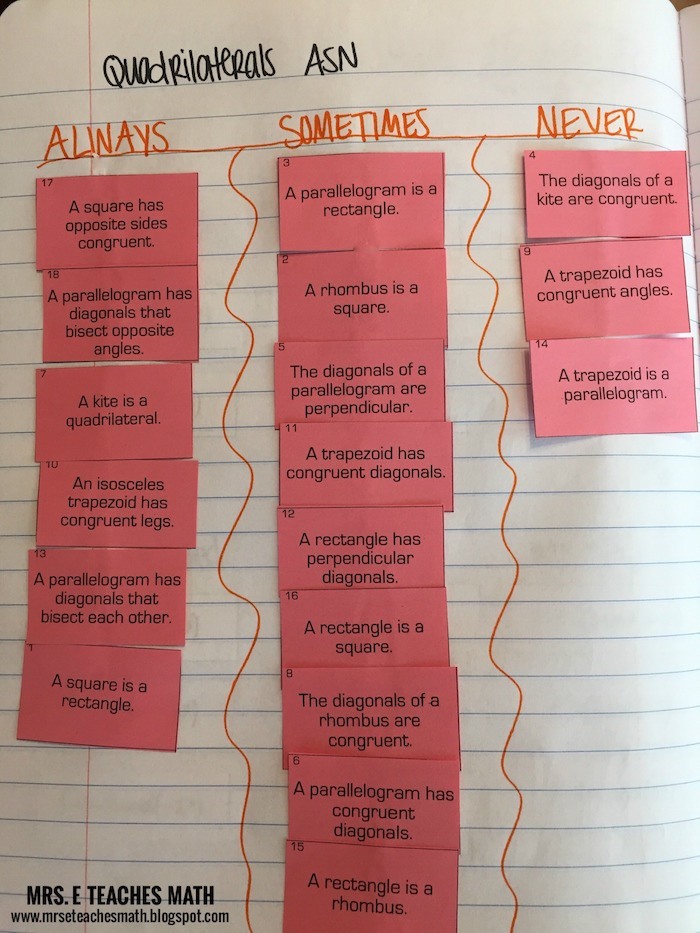 Quadrilaterals ASN
ALWAYS
17
A square has
opposite sides
congruent.
18
A parallelogram has
diagonals that
bisect opposite
angles.
7
A kite is a
quadrilateral.
10
An isosceles
trapezoid has
congruent legs.
13
A parallelogram has
diagonals that
bisect each other.
1
A square is a
rectangle.
SOMETIMES
3
A parallelogram is a
rectangle.
2
A rhombus is a
square.
5
The diagonals of a
parallelogram are
perpendicular.
11
A trapezoid has
congruent diagonals.
12
A rectangle has
perpendicular
diagonals.
16
A rectangle is a
square.
8
The diagonals of a
rhombus are
congruent.
6
A parallelogram has
congruent
diagonals.
15
A rectangle is a
rhombus.
NEVER
4
The diagonals of a
kite are congruent.
9
A trapezoid has
congruent angles.
14
A trapezoid is a
parallelogram.
MRS. E TEACHES MATH
www.mrseteachesmath.blogspot.com